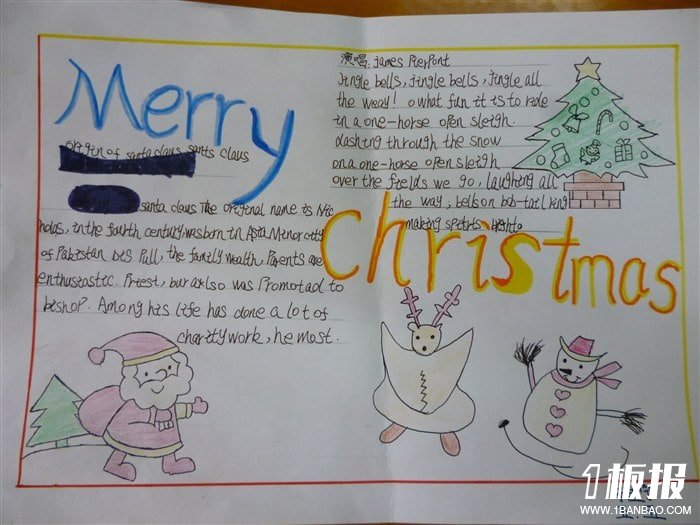 Merry
Christmas
origin of santa claus santa claus
santa claus The original name is Nic
holas, in the fourth century was born in Asia Minor city
of Pakistan bis Pull, the family wealth, Parents are
enthusiastic. Priest, bur also was Promotad to
bishop. Among his life has done a lot of
charity work, he most.
演唱: James Pierpont
Jingle bells, Jingle bells, Jingle all
the weay! o what fun it is to ride
in a one-horse open sleigh.
dashing through the snow
on a one-horse open sleigh
over the fields we go, laughing all
the way, bells on bob-tail ring
making spirits
11板报
WWW.1BANBAO.COM